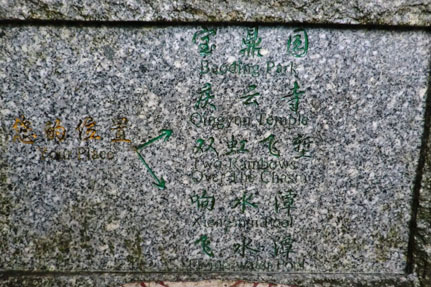 宝鼎园
Baoding Park
庆云寺
Qingyun Temple
您的位置
Your Place
双虹飞堑
Two Rainbows
Over the Chasm
响水潭
飞水潭